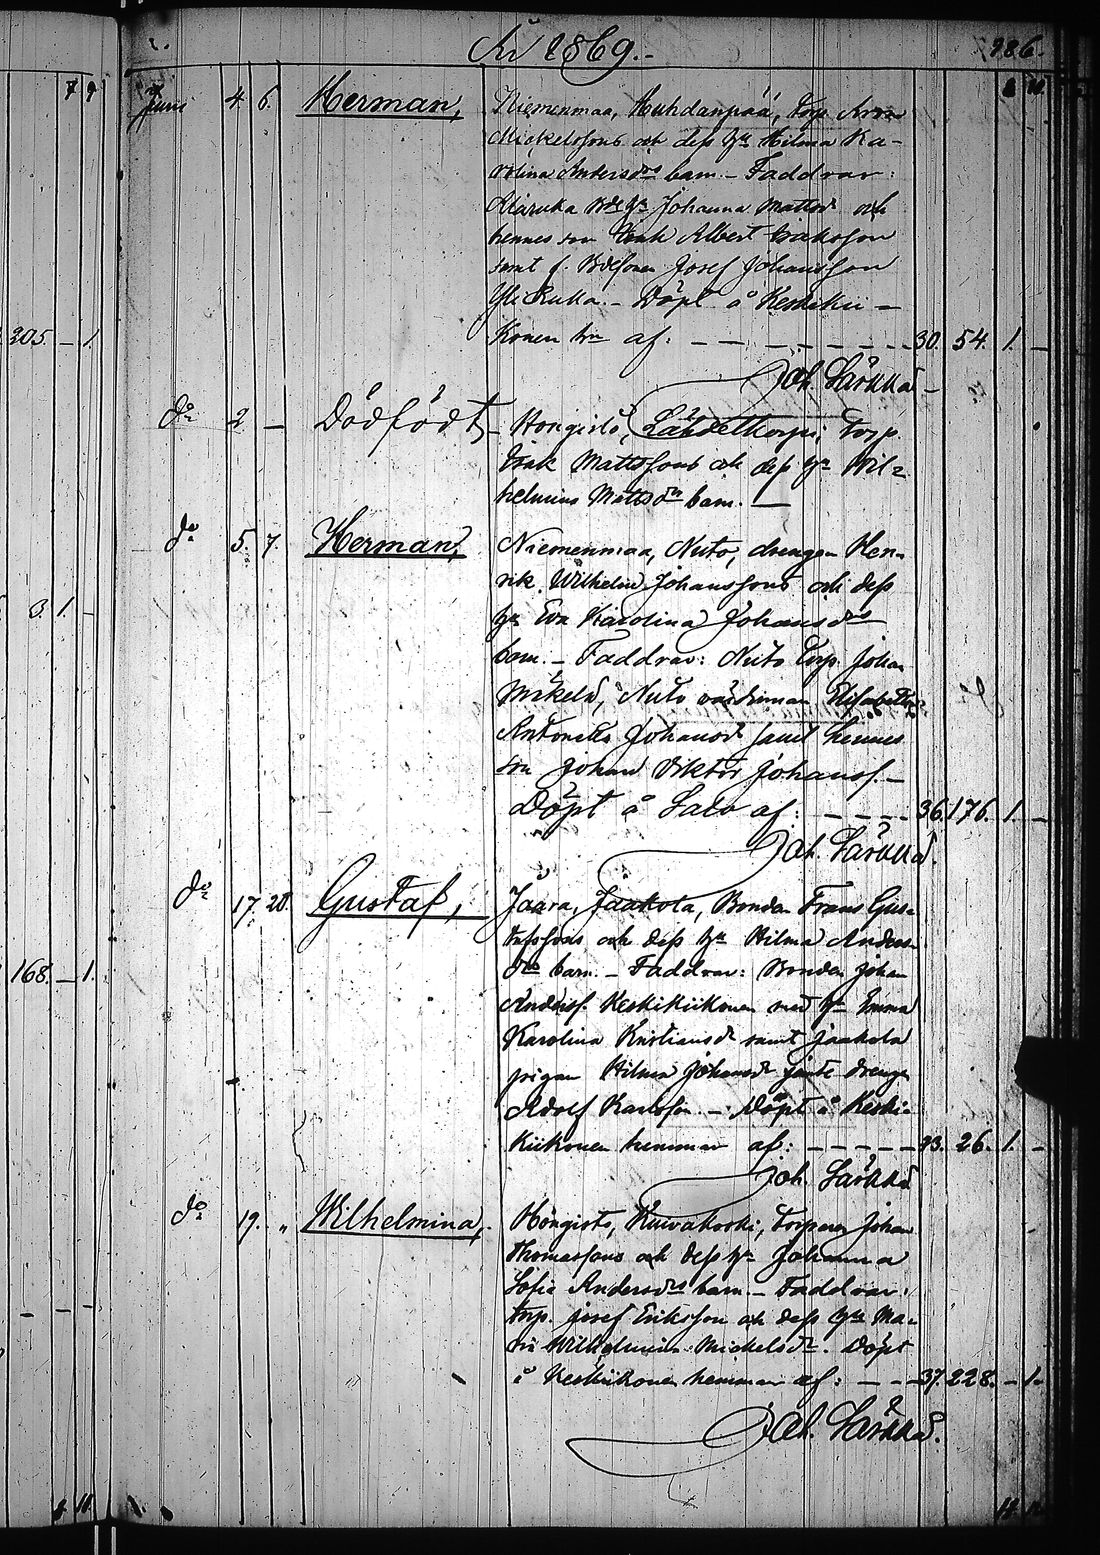 År 1869.
286.
7 9
Juni 4. 6. Herman, Niemenmaa, Huhdanpää, torp.
Mickelssons och dess hu Hilma Ka-
rolina Antersdrs barn. — Faddrar:
hu Johanna Mattsd och
hennes son Isak Albert Isaksson
samt f. Josef Johansson
Döpt å Keskikii-
konen hn af: — — — 30. 54. 1. —
205. — 1.
Joh. Särkkä —
do 2. — Dödfödt, — Hongisto, Lähdetkorpi, torp.
Isak Mattssons och dess hu Wil-
helmina Mattsdrs barn. —
do 5. 7. Herman, Niemenmaa, Nuto, drengen Hen-
rik Wilhelm Johanssons och dess
hu Eva Karolina Johansdrs
3. 1. —
barn. — Faddrar: Nuto torp. Johan
Mikelss, Nuto värdinnan Elisabeth
Johansd samt hennes
son Johan Viktor Johanss. —
Döpt å Salo af: — — — 36. 176. 1. —
Joh. Särkkä.
do 17. 20. Gustaf, Jaara, Jaakola, Bonden Frans Gus-
tafssons och dess hu Hilma Anders-
drs barn. — Faddrar: Bonden Johan
168. — 1.
Anderss. Keskikiikonen med hu Emma
Karolina Kristiansdr samt Jaakola
pigan Hilma Johansd jämte dreng
Adolf Karlsson. — Döpt å Keski-
kiikonen hemman af: — — — 93. 26. 1. —
Joh. Särkkä
do 19. „ Wilhelmina, Hongisto, Kuivakoski, torparen Johan
Thomassons och dess hu Johanna
Sofia Andersdrs barn. — Faddrar:
torp. Josef Eriksson och dess hu Ma-
ria Wilhelmina Mickelsdr. Döpt
å Keskikiikonen hemman af: — — 37. 228. — 1.
Joh. Särkkä.